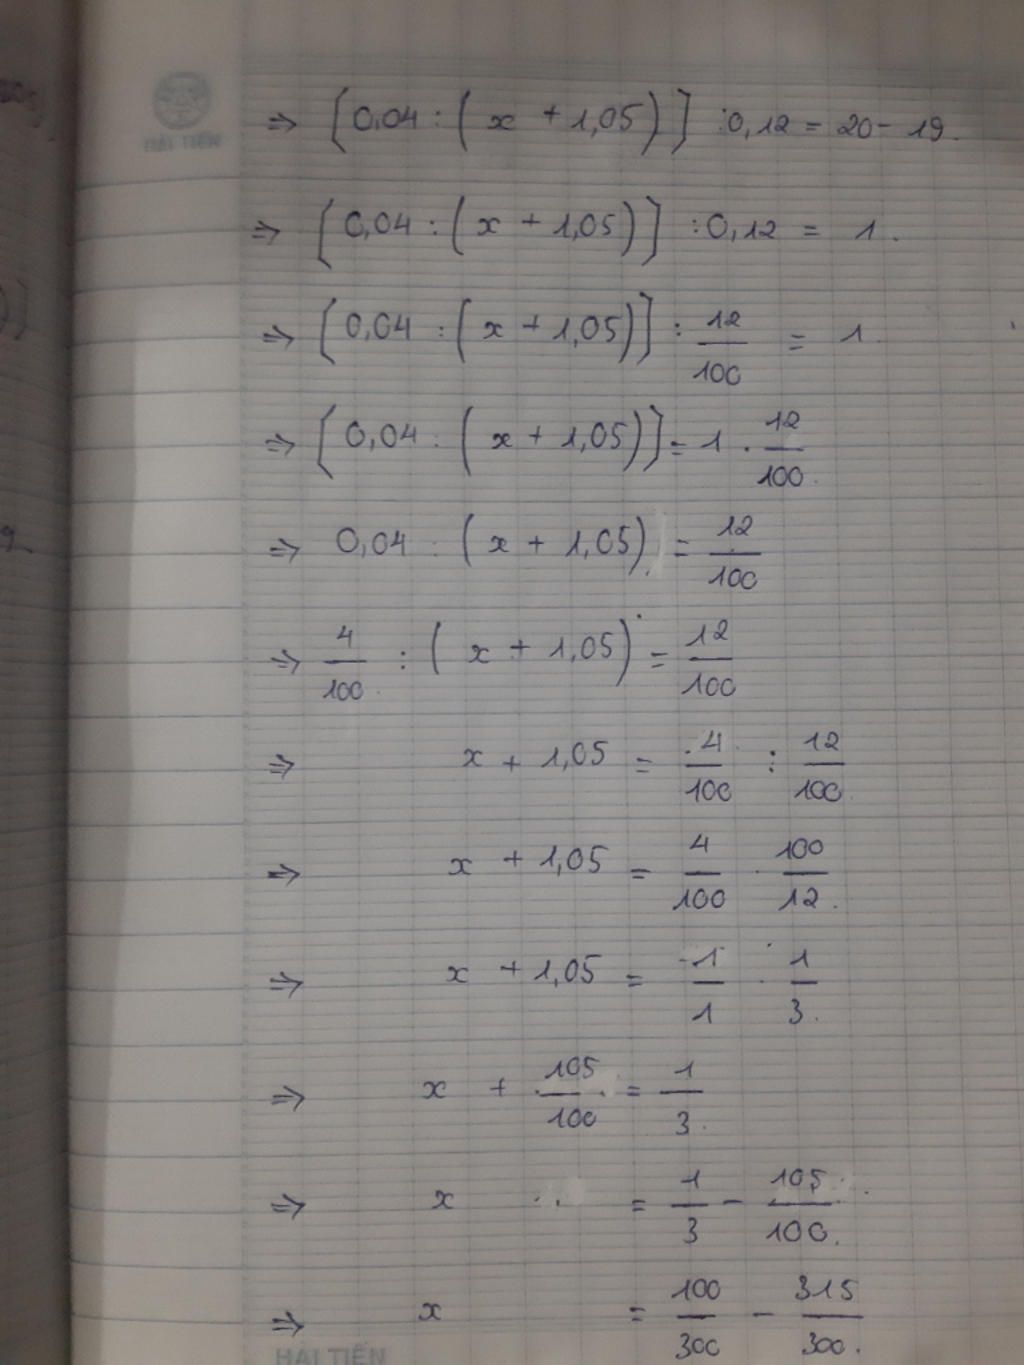 HẢI TIẾN
=> [0,04 : (x + 1,05)] : 0,12 = 20 - 19.
=> [0,04 : (x + 1,05)] : 0,12 = 1.
=> [0,04 : (x + 1,05)] : 12/100 = 1
=> [0,04 : (x + 1,05)] = 1 . 12/100.
=> 0,04 : (x + 1,05) = 12/100
=> 4/100 : (x + 1,05) = 12/100
=> x + 1,05 = 4/100 : 12/100
=> x + 1,05 = 4/100 . 100/12.
=> x + 1,05 = 1/1 . 1/3.
=> x + 105/100 = 1/3.
=> x = 1/3 - 105/100.
=> x = 100/300 - 315/300.
HẢI TIẾN